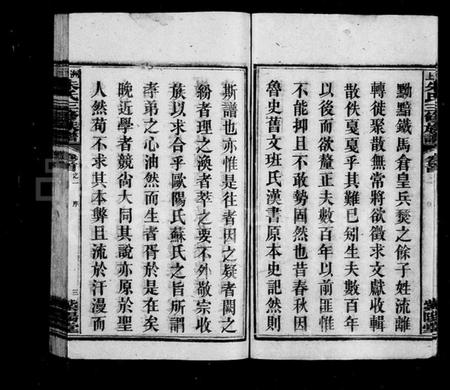 黝黯鐵馬倉皇兵燹之餘子姓流離
轉徙聚散無常將欲徵求文獻收輯
散佚戞戞乎其難已矧生夫數百年
以後而欲釐正夫數百年以前匪惟
不能抑且不敢勢固然也昔春秋因
魯史舊文班氏漢書原本史記然則
斯譜也亦惟是往者因之疑者闕之
紛者理之渙者萃之要不外敬宗收
族以求合乎歐陽氏蘇氏之旨所謂
孝弟之心油然而生者胥於是在矣
晚近學者競尙大同其說亦原於聖
人然苟不求其本弊且流於汗漫而
卷首
之一
序
三